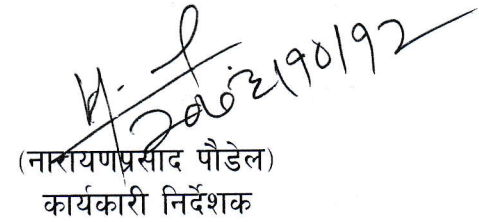 २०७३।१०।१२
(नारायणप्रसाद पौडेल)
कार्यकारी निर्देशक